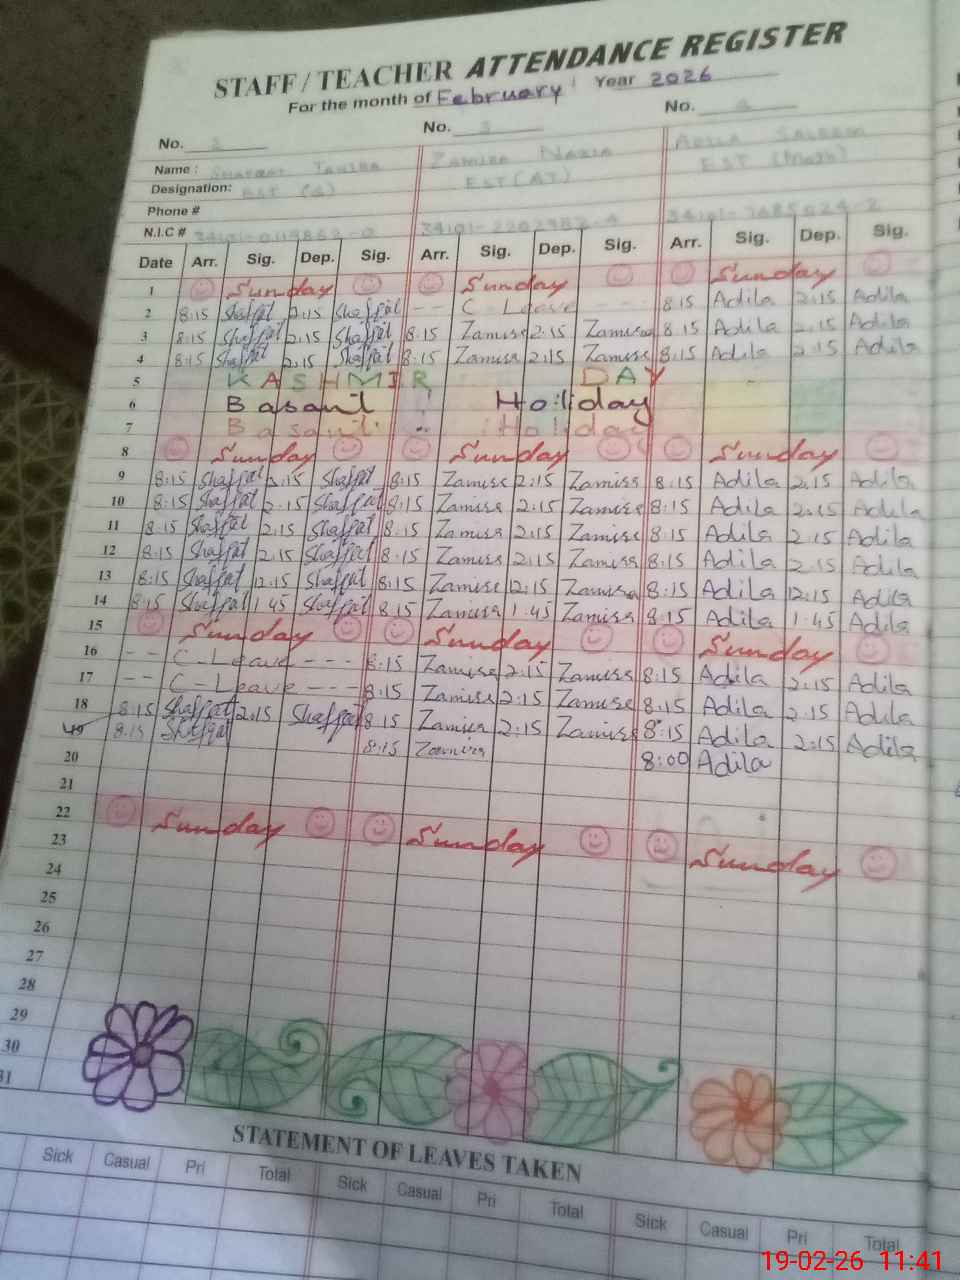 STAFF / TEACHER ATTENDANCE REGISTER
For the month of February Year 2026
No. No. No.
Name :
Designation: EST (AT) EST (Math)
Phone #
N.I.C #
Date Arr. Sig. Dep. Sig. Arr. Sig. Dep. Sig. Arr. Sig. Dep. Sig.
1 Sunday Sunday Sunday
2 8:15 Shaffat 2:15 Shaffat -- C-Leave --- 8:15 Adila 2:15 Adila
3 8:15 Shaffat 2:15 Shaffat 8:15 Zamisa 2:15 Zamisa 8:15 Adila 2:15 Adila
4 8:15 Shaffat 2:15 Shaffat 8:15 Zamisa 2:15 Zamisa 8:15 Adila 2:15 Adila
5 KASHMIR DAY
6 Basant Holiday
7 Basant Holiday
8 Sunday Sunday Sunday
9 8:15 Shaffat 2:15 Shaffat 8:15 Zamisa 2:15 Zamisa 8:15 Adila 2:15 Adila
10 8:15 Shaffat 2:15 Shaffat 8:15 Zamisa 2:15 Zamisa 8:15 Adila 2:15 Adila
11 8:15 Shaffat 2:15 Shaffat 8:15 Zamisa 2:15 Zamisa 8:15 Adila 2:15 Adila
12 8:15 Shaffat 2:15 Shaffat 8:15 Zamisa 2:15 Zamisa 8:15 Adila 2:15 Adila
13 8:15 Shaffat 12:15 Shaffat 8:15 Zamisa 12:15 Zamisa 8:15 Adila 12:15 Adila
14 8:15 Shaffat 1:45 Shaffat 8:15 Zamisa 1:45 Zamisa 8:15 Adila 1:45 Adila
15 Sunday Sunday Sunday
16 -- C-Leave --- 8:15 Zamisa 2:15 Zamisa 8:15 Adila 2:15 Adila
17 -- C-Leave --- 8:15 Zamisa 2:15 Zamisa 8:15 Adila 2:15 Adila
18 8:15 Shaffat 2:15 Shaffat 8:15 Zamisa 2:15 Zamisa 8:15 Adila 2:15 Adila
19 8:15 Shaffat 8:15 Zamisa 8:00 Adila
20
21
22 Sunday Sunday Sunday
23
24
25
26
27
28
29
30
31
STATEMENT OF LEAVES TAKEN
Sick Casual Pri Total Sick Casual Pri Total Sick Casual Pri Total
19-02-26 11:41